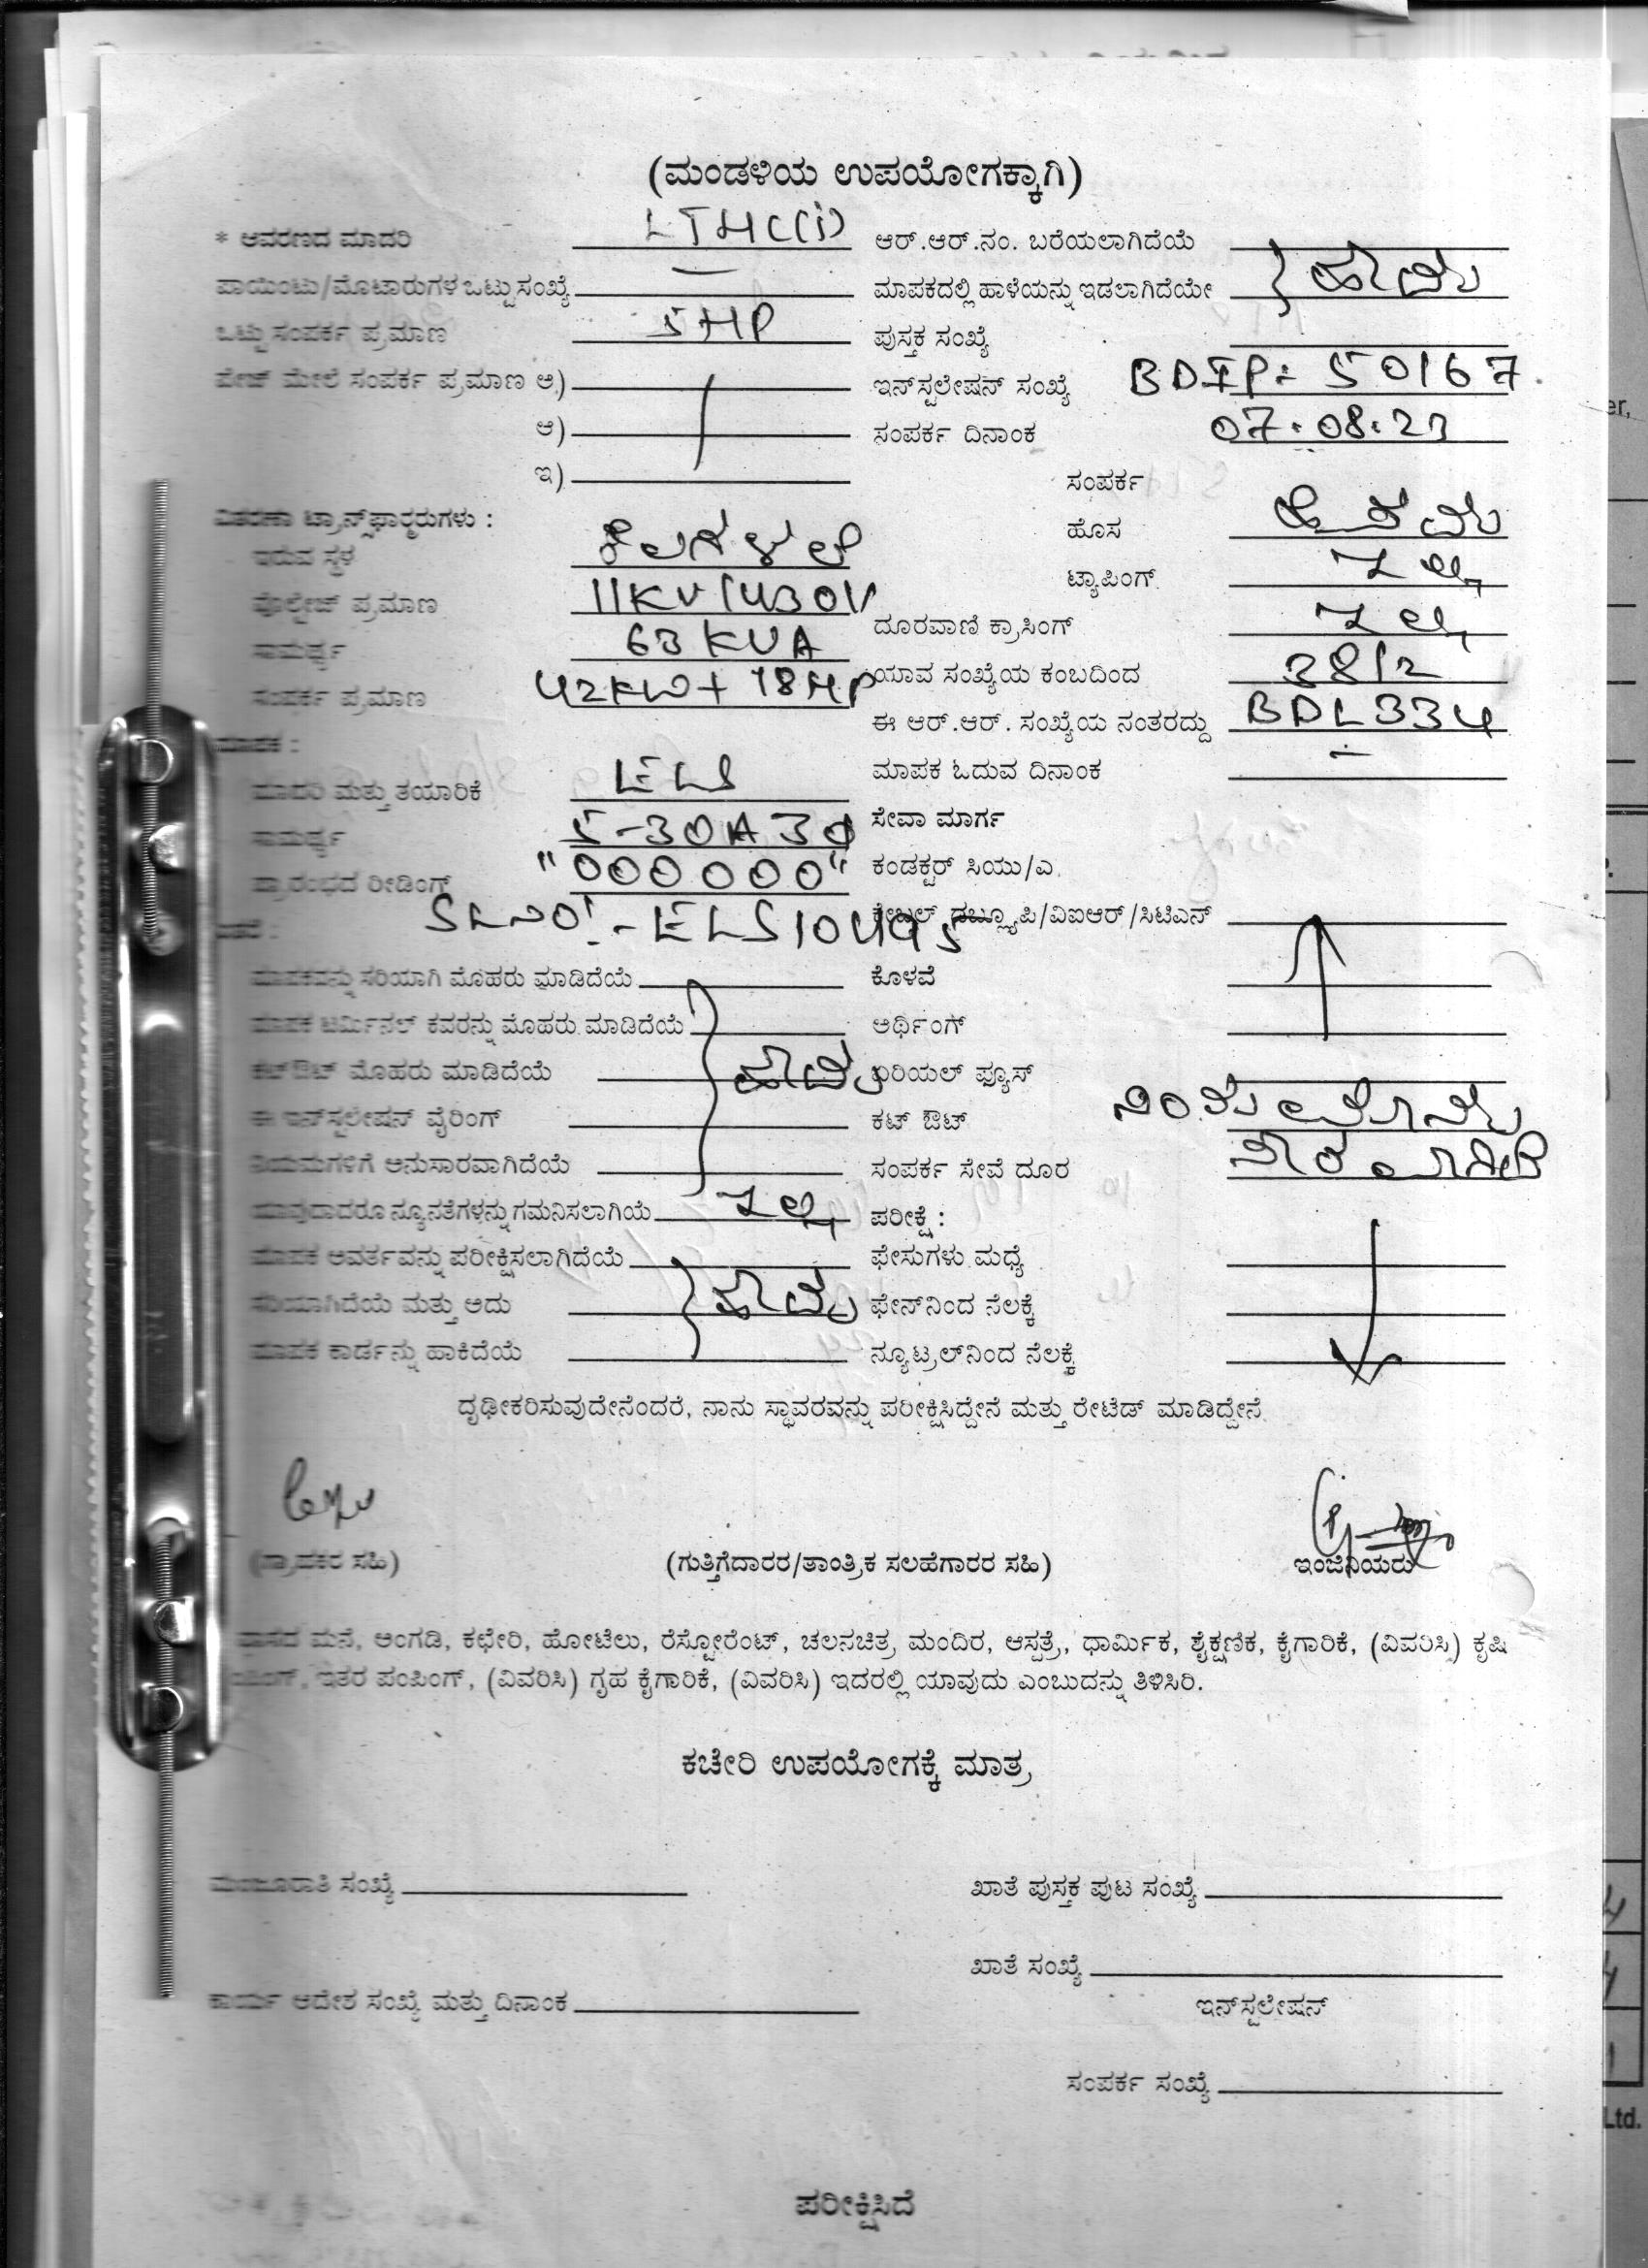 (ಮಂಡಳಿಯ ಉಪಯೋಗಕ್ಕಾಗಿ)
* ಆವರಣದ ಮಾದರಿ LT4C(i) ಆರ್.ಆರ್.ನಂ. ಬರೆಯಲಾಗಿದೆಯೆ
ಪಾಯಿಂಟು/ಮೊಟಾರುಗಳ ಒಟ್ಟು ಸಂಖ್ಯೆ — ಮಾಪಕದಲ್ಲಿ ಹಾಳೆಯನ್ನು ಇಡಲಾಗಿದೆಯೇ ಹೌದು
ಒಟ್ಟು ಸಂಪರ್ಕ ಪ್ರಮಾಣ 5HP ಪುಸ್ತಕ ಸಂಖ್ಯೆ
ಪೇಜ್ ಮೇಲೆ ಸಂಪರ್ಕ ಪ್ರಮಾಣ ಅ) ಇನ್‌ಸ್ಟಲೇಷನ್ ಸಂಖ್ಯೆ BDIP: 50167
ಆ) ಸಂಪರ್ಕ ದಿನಾಂಕ 07.08.23
ಇ) ಸಂಪರ್ಕ
ವಿತರಣಾ ಟ್ರಾನ್ಸ್‌ಫಾರ್ಮರುಗಳು : ಹೊಸ
ಇರುವ ಸ್ಥಳ ಟ್ಯಾಪಿಂಗ್ ಇಲ್ಲ
ವೊಲ್ಟೇಜ್ ಪ್ರಮಾಣ 11KV/430V ದೂರವಾಣಿ ಕ್ರಾಸಿಂಗ್ ಇಲ್ಲ
ಸಾಮರ್ಥ್ಯ 63KVA ಯಾವ ಸಂಖ್ಯೆಯ ಕಂಬದಿಂದ 38/2
ಸಂಪರ್ಕ ಪ್ರಮಾಣ 42KW+18HP ಈ ಆರ್.ಆರ್. ಸಂಖ್ಯೆಯ ನಂತರದ್ದು BDL334
ಮಾಪಕ : ಮಾಪಕ ಓದುವ ದಿನಾಂಕ —
ಮಾದರಿ ಮತ್ತು ತಯಾರಿಕೆ ಸೇವಾ ಮಾರ್ಗ
ಸಾಮರ್ಥ್ಯ 5-30A 3Ø
ಪ್ರಾರಂಭದ ರೀಡಿಂಗ್ "000000" ಕಂಡಕ್ಟರ್ ಸಿಯು/ಎ.
SLNO:- ಕೇಬಲ್ ಡಬ್ಲ್ಯೂಪಿ/ವಿಐಆರ್/ಸಿಟಿಎಸ್
ಮಾಪಕವನ್ನು ಸರಿಯಾಗಿ ಮೊಹರು ಮಾಡಿದೆಯೆ ಕೊಳವೆ
ಮಾಪಕ ಟರ್ಮಿನಲ್ ಕವರನ್ನು ಮೊಹರು ಮಾಡಿದೆಯೆ ಅರ್ಥಿಂಗ್
ಕಟ್‌ಔಟ್ ಮೊಹರು ಮಾಡಿದೆಯೆ ಹೌದು ಏರಿಯಲ್ ಫ್ಯೂಸ್
ಈ ಇನ್‌ಸ್ಟಲೇಷನ್ ವೈರಿಂಗ್ ಕಟ್ ಔಟ್
ನಿಯಮಗಳಿಗೆ ಅನುಸಾರವಾಗಿದೆಯೆ ಸಂಪರ್ಕ ಸೇವೆ ದೂರ
ಯಾವುದಾದರೂ ನ್ಯೂನತೆಗಳನ್ನು ಗಮನಿಸಲಾಗಿಯೆ ಇಲ್ಲ ಪರೀಕ್ಷೆ :
ಮಾಪಕ ಆವರ್ತವನ್ನು ಪರೀಕ್ಷಿಸಲಾಗಿದೆಯೆ ಫೇಸುಗಳು ಮಧ್ಯೆ
ಸರಿಯಾಗಿದೆಯೆ ಮತ್ತು ಅದು ಹೌದು ಫೇಸ್‌ನಿಂದ ನೆಲಕ್ಕೆ
ಮಾಪಕ ಕಾರ್ಡನ್ನು ಹಾಕಿದೆಯೆ ನ್ಯೂಟ್ರಲ್‌ನಿಂದ ನೆಲಕ್ಕೆ
ದೃಢೀಕರಿಸುವುದೇನೆಂದರೆ, ನಾನು ಸ್ಥಾವರವನ್ನು ಪರೀಕ್ಷಿಸಿದ್ದೇನೆ ಮತ್ತು ರೇಟೆಡ್ ಮಾಡಿದ್ದೇನೆ.
(ಸ್ಥಾಪಕರ ಸಹಿ) (ಗುತ್ತಿಗೆದಾರರ/ತಾಂತ್ರಿಕ ಸಲಹೆಗಾರರ ಸಹಿ) ಇಂಜಿನಿಯರು
ವಾಸದ ಮನೆ, ಅಂಗಡಿ, ಕಛೇರಿ, ಹೋಟೆಲು, ರೆಸ್ಟೋರೆಂಟ್, ಚಲನಚಿತ್ರ ಮಂದಿರ, ಆಸ್ಪತ್ರೆ, ಧಾರ್ಮಿಕ, ಶೈಕ್ಷಣಿಕ, ಕೈಗಾರಿಕೆ, (ವಿವರಿಸಿ) ಕೃಷಿ
ಇತರ ಪಂಪಿಂಗ್, (ವಿವರಿಸಿ) ಗೃಹ ಕೈಗಾರಿಕೆ, (ವಿವರಿಸಿ) ಇದರಲ್ಲಿ ಯಾವುದು ಎಂಬುದನ್ನು ತಿಳಿಸಿರಿ.
ಕಚೇರಿ ಉಪಯೋಗಕ್ಕೆ ಮಾತ್ರ
ಮಂಜೂರಾತಿ ಸಂಖ್ಯೆ ಖಾತೆ ಪುಸ್ತಕ ಪುಟ ಸಂಖ್ಯೆ
ಖಾತೆ ಸಂಖ್ಯೆ
ಕಾರ್ಯ ಆದೇಶ ಸಂಖ್ಯೆ ಮತ್ತು ದಿನಾಂಕ ಇನ್‌ಸ್ಟಲೇಷನ್
ಸಂಪರ್ಕ ಸಂಖ್ಯೆ
Ltd.
ಪರೀಕ್ಷಿಸಿದೆ